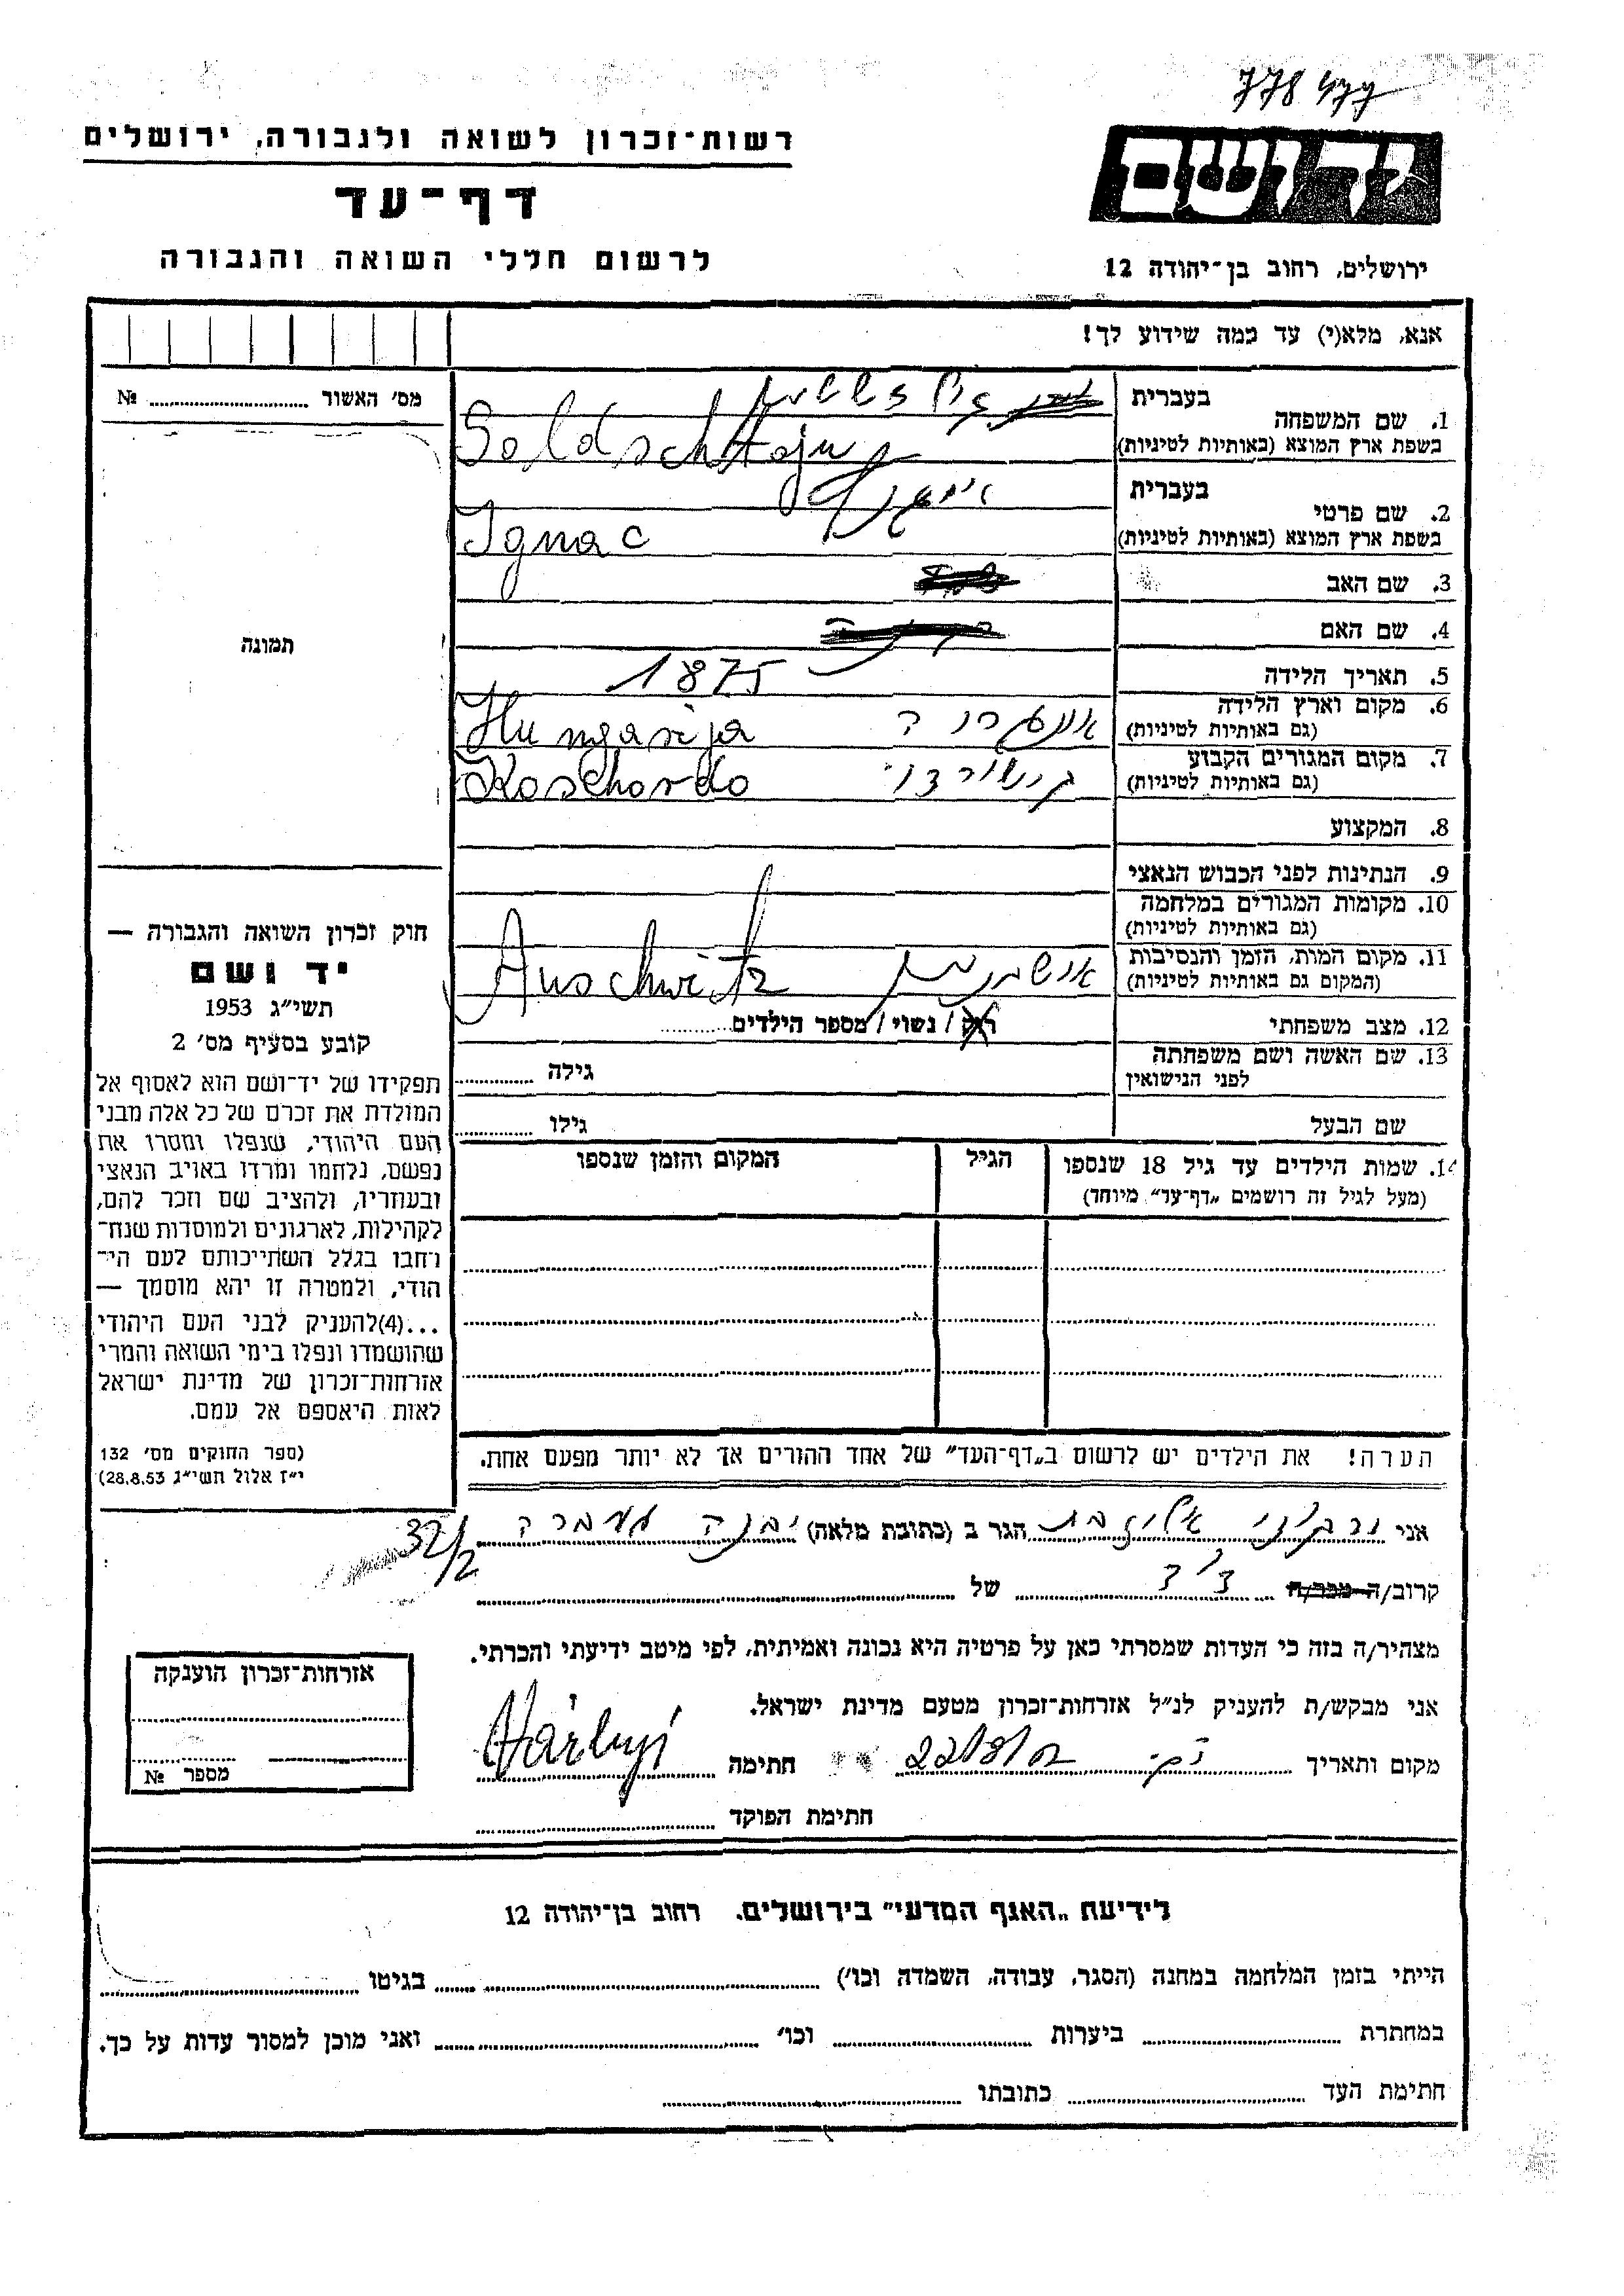 778477
רשות־זכרון לשואה ולגבורה, ירושלים
יד ושם
דף־עד
לרשום חללי השואה והגבורה
ירושלים, רחוב בן־יהודה 12
אנא, מלא(י) עד כמה שידוע לך!
מס׳ האשור № 
1. שם המשפחה בעברית
בשפת ארץ המוצא (באותיות לטיניות) Goldschtajn
2. שם פרטי בעברית
בשפת ארץ המוצא (באותיות לטיניות) Ignac
3. שם האב
4. שם האם
תמונה
5. תאריך הלידה 1875
6. מקום וארץ הלידה אונגריה Hungarija
(גם באותיות לטיניות)
7. מקום המגורים הקבוע Koschordo
(גם באותיות לטיניות)
8. המקצוע
9. הנתינות לפני הכבוש הנאצי
10. מקומות המגורים במלחמה
(גם באותיות לטיניות)
11. מקום המות, הזמן והנסיבות אושוויץ Auschwitz
(המקום גם באותיות לטיניות)
12. מצב משפחתי רוק / נשוי / מספר הילדים
13. שם האשה ושם משפחתה גילה
לפני הנישואין
שם הבעל גילו
14. שמות הילדים עד גיל 18 שנספו הגיל המקום והזמן שנספו
(מעל לגיל זה רושמים „דף־עד״ מיוחד)
חוק זכרון השואה והגבורה —
יד ושם
תשי״ג 1953
קובע בסעיף מס׳ 2
תפקידו של יד־ושם הוא לאסוף אל
המולדת את זכרם של כל אלה מבני
העם היהודי, שנפלו ומסרו את
נפשם, נלחמו ומרדו באויב הנאצי
ובעוזריו, ולהציב שם וזכר להם,
לקהילות, לארגונים ולמוסדות שנח־
רחבו בגלל השתייכותם לעם הי־
הודי, ולמטרה זו יהא מוסמך —
...(4)להעניק לבני העם היהודי
שהושמדו ונפלו בימי השואה והמרי
אזרחות־זכרון של מדינת ישראל
לאות היאספם אל עמם.
(ספר החוקים מס׳ 132
י״ז אלול תשי״ג 28.8.53)
הערה! את הילדים יש לרשום ב„דף־העד״ של אחד ההורים אך לא יותר מפעם אחת.
אני הגר ב (כתובת מלאה) 32/2
קרוב/ה מכר/ה של
מצהיר/ה בזה כי העדות שמסרתי כאן על פרטיה היא נכונה ואמיתית, לפי מיטב ידיעתי והכרתי.
אני מבקש/ת להעניק לנ״ל אזרחות־זכרון מטעם מדינת ישראל.
מקום ותאריך חתימה
חתימת הפוקד
אזרחות־זכרון הוענקה
מספר №
לידיעת „האגף המדעי״ בירושלים. רחוב בן־יהודה 12
הייתי בזמן המלחמה במחנה (הסגר, עבודה, השמדה וכו׳) בגיטו
במחתרת ביערות וכו׳ ואני מוכן למסור עדות על כך.
חתימת העד כתובתו